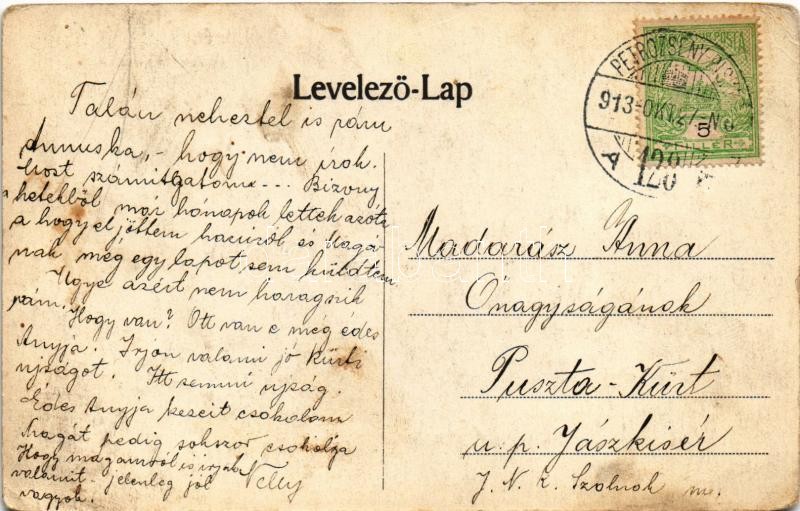 Levelező-Lap
Talán neheztel is rám
Annuska, - hogy nem írok.
Most számítgatom... Bizony
a hetekből már hónapok lettek azóta
a hogy eljöttem hazúról és Magá-
nak még egy lapot sem küldtem.
Ugye azért nem haragszik
rám. Hogy van? Ott van e még édes
Anyja. Irjon valami jó Kürti
ujságot. Itt semmi ujság.
Édes Anyja kezeit csókolom
Magát pedig sokszor csókolja
Nelly
Hogy magamról is irjak
valamit - jelenleg jól
vagyok.
Madarász Anna
Őnagyságának
Puszta-Kürt
u. p. Jászkisér
J. N. K. Szolnok m.
POSTA
5
FILLER
PETROZSÉNY
913-OKT.27-N
A
120